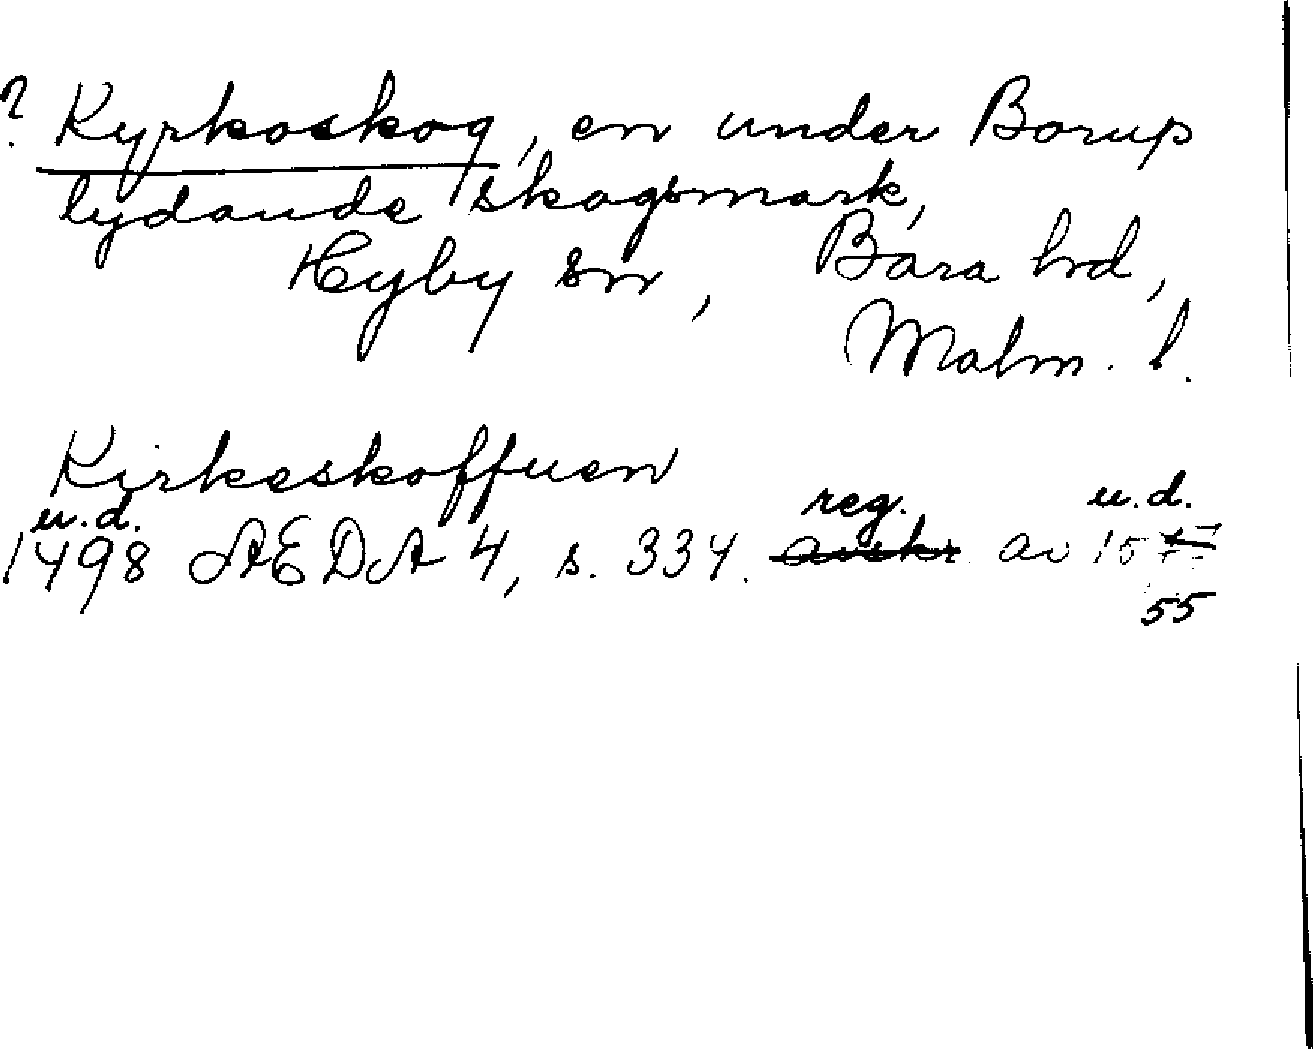 ? Kyrkoskog, en under Borup
lydande skogsmark,
Hyby sn, Bara hd,
Malm. l.
Kirkeskoffuen
u.d. reg. u.d.
1498 AEDA 4, s. 334. avskr av 15
55